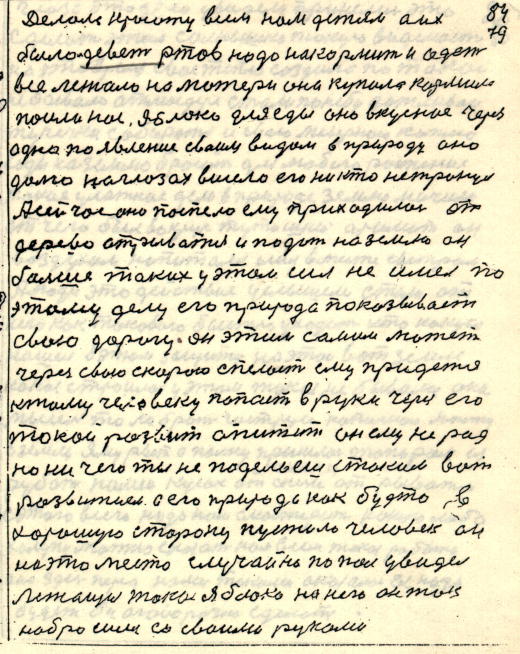 84
79
Делом простоту всем нам детям а их
было девет ртов надо накормит и одет
все лежало на матери она купала кормила
поила нас, Яблоко для еды оно вкусное через
одна появление своим видом в природу оно
долго на глозах висело его никто не тронул
А сейчас оно поспело ему приходилос от
дерево отрзватя и подат на землю он
больше таких у этом сил не имел по
этому делу его природа показывает
свою дорогу. он этим самим может
через свою скорою спелост ему придется
ктому человеку попаст в руки чере его
такой развит опитит он ему не рад
но ни чего ты не поделаеш с таким вот
развитием а его природа как будто в
хорошую сторону пустила человек он
на это место случайно попал увидел
лежащие такое Яблоко на него он так
набросился со своими руками